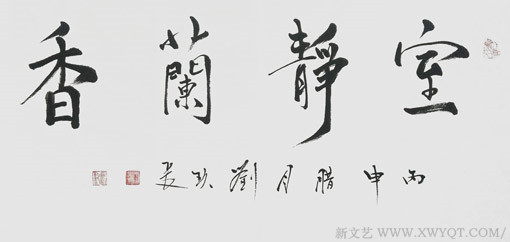 室靜蘭香
丙申腊月劉
新文艺 WWW.XWYQT.COM/